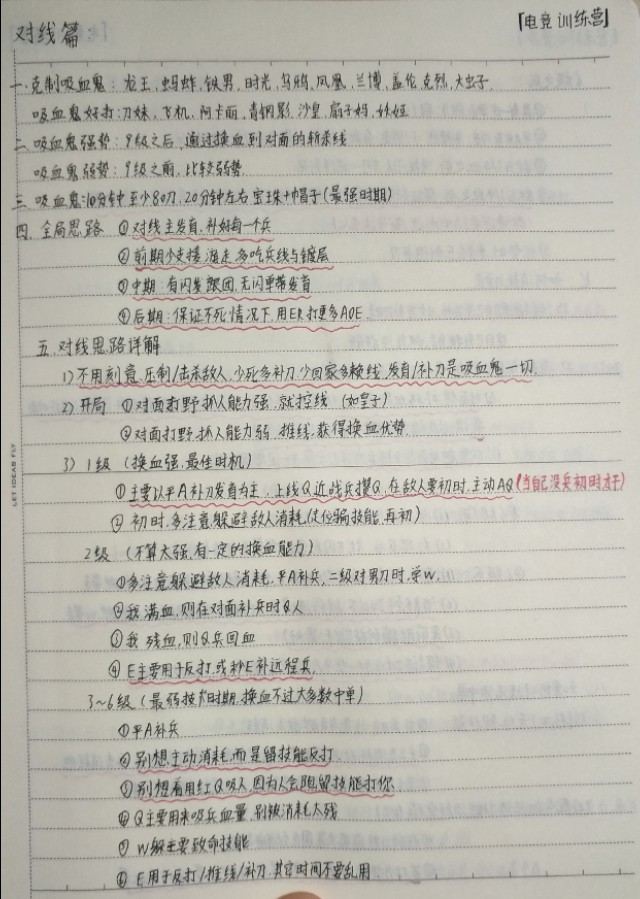 「电竞训练营」
对线篇
一.克制吸血鬼：龙王、蚂蚱、铁男、时光、乌鸦、凤凰、兰博、盖伦、克烈、大虫子.
吸血鬼好打:刀妹、飞机、阿卡丽、青钢影、沙皇、扇子妈、妖姬
二、吸血鬼强势：9级之后，通过换血到对面的斩杀线
吸血鬼弱势：9级之前，比较弱势.
三、吸血鬼:10分钟至少80刀，20分钟左右宝珠+帽子(最强时期)
四、全局思路 ①对线主发育，补好每一个兵
②前期少支援游走，多吃兵线与镀层
③中期：有闪发跟团，无闪单带发育
④后期：保证不死情况下，用ER打更多AOE.
五、对线思路详解
1）不用刻意压制/击杀敌人，少死多补刀，少回家多赖线，发育/补刀是吸血鬼一切.
2）开局 ①对面打野抓人能力强，就控线（如皇子）
②对面打野抓人能力弱，推线，获得换血优势.
3）1级（换血强，最佳时机）
①主要以平A补刀发育为主，上线Q近战兵攒Q，在敌人要初时，主动AQ(当自己没兵初时才干)
②初时，多注意躲避敌人消耗(走位骗技能，再初)
2级（不算太强，有一定的换血能力）
①多注意躲避敌人消耗，平A补兵，二级对男刀时，学W.
②我满血，则在对面补兵时Q人
③我残血，则Q兵回血
④E主要用于反打，或秒E补远程兵.
3~6级（最弱技术时期，换血不过大多数中单）
①平A补兵
②别想主动消耗，而是留技能反打
③别想着用红Q吸人，因为人会留技能打你.
④Q主要用来吸兵血量，别被消耗太残
⑤W躲主要致命技能
⑥E用于反打/推线/补刀，其它时间不要乱用
LET IDEAS FLY